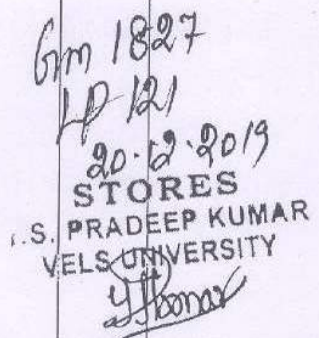 Gm 1827
LP 121
20.12.2019
STORES
.S. PRADEEP KUMAR
VELS UNIVERSITY